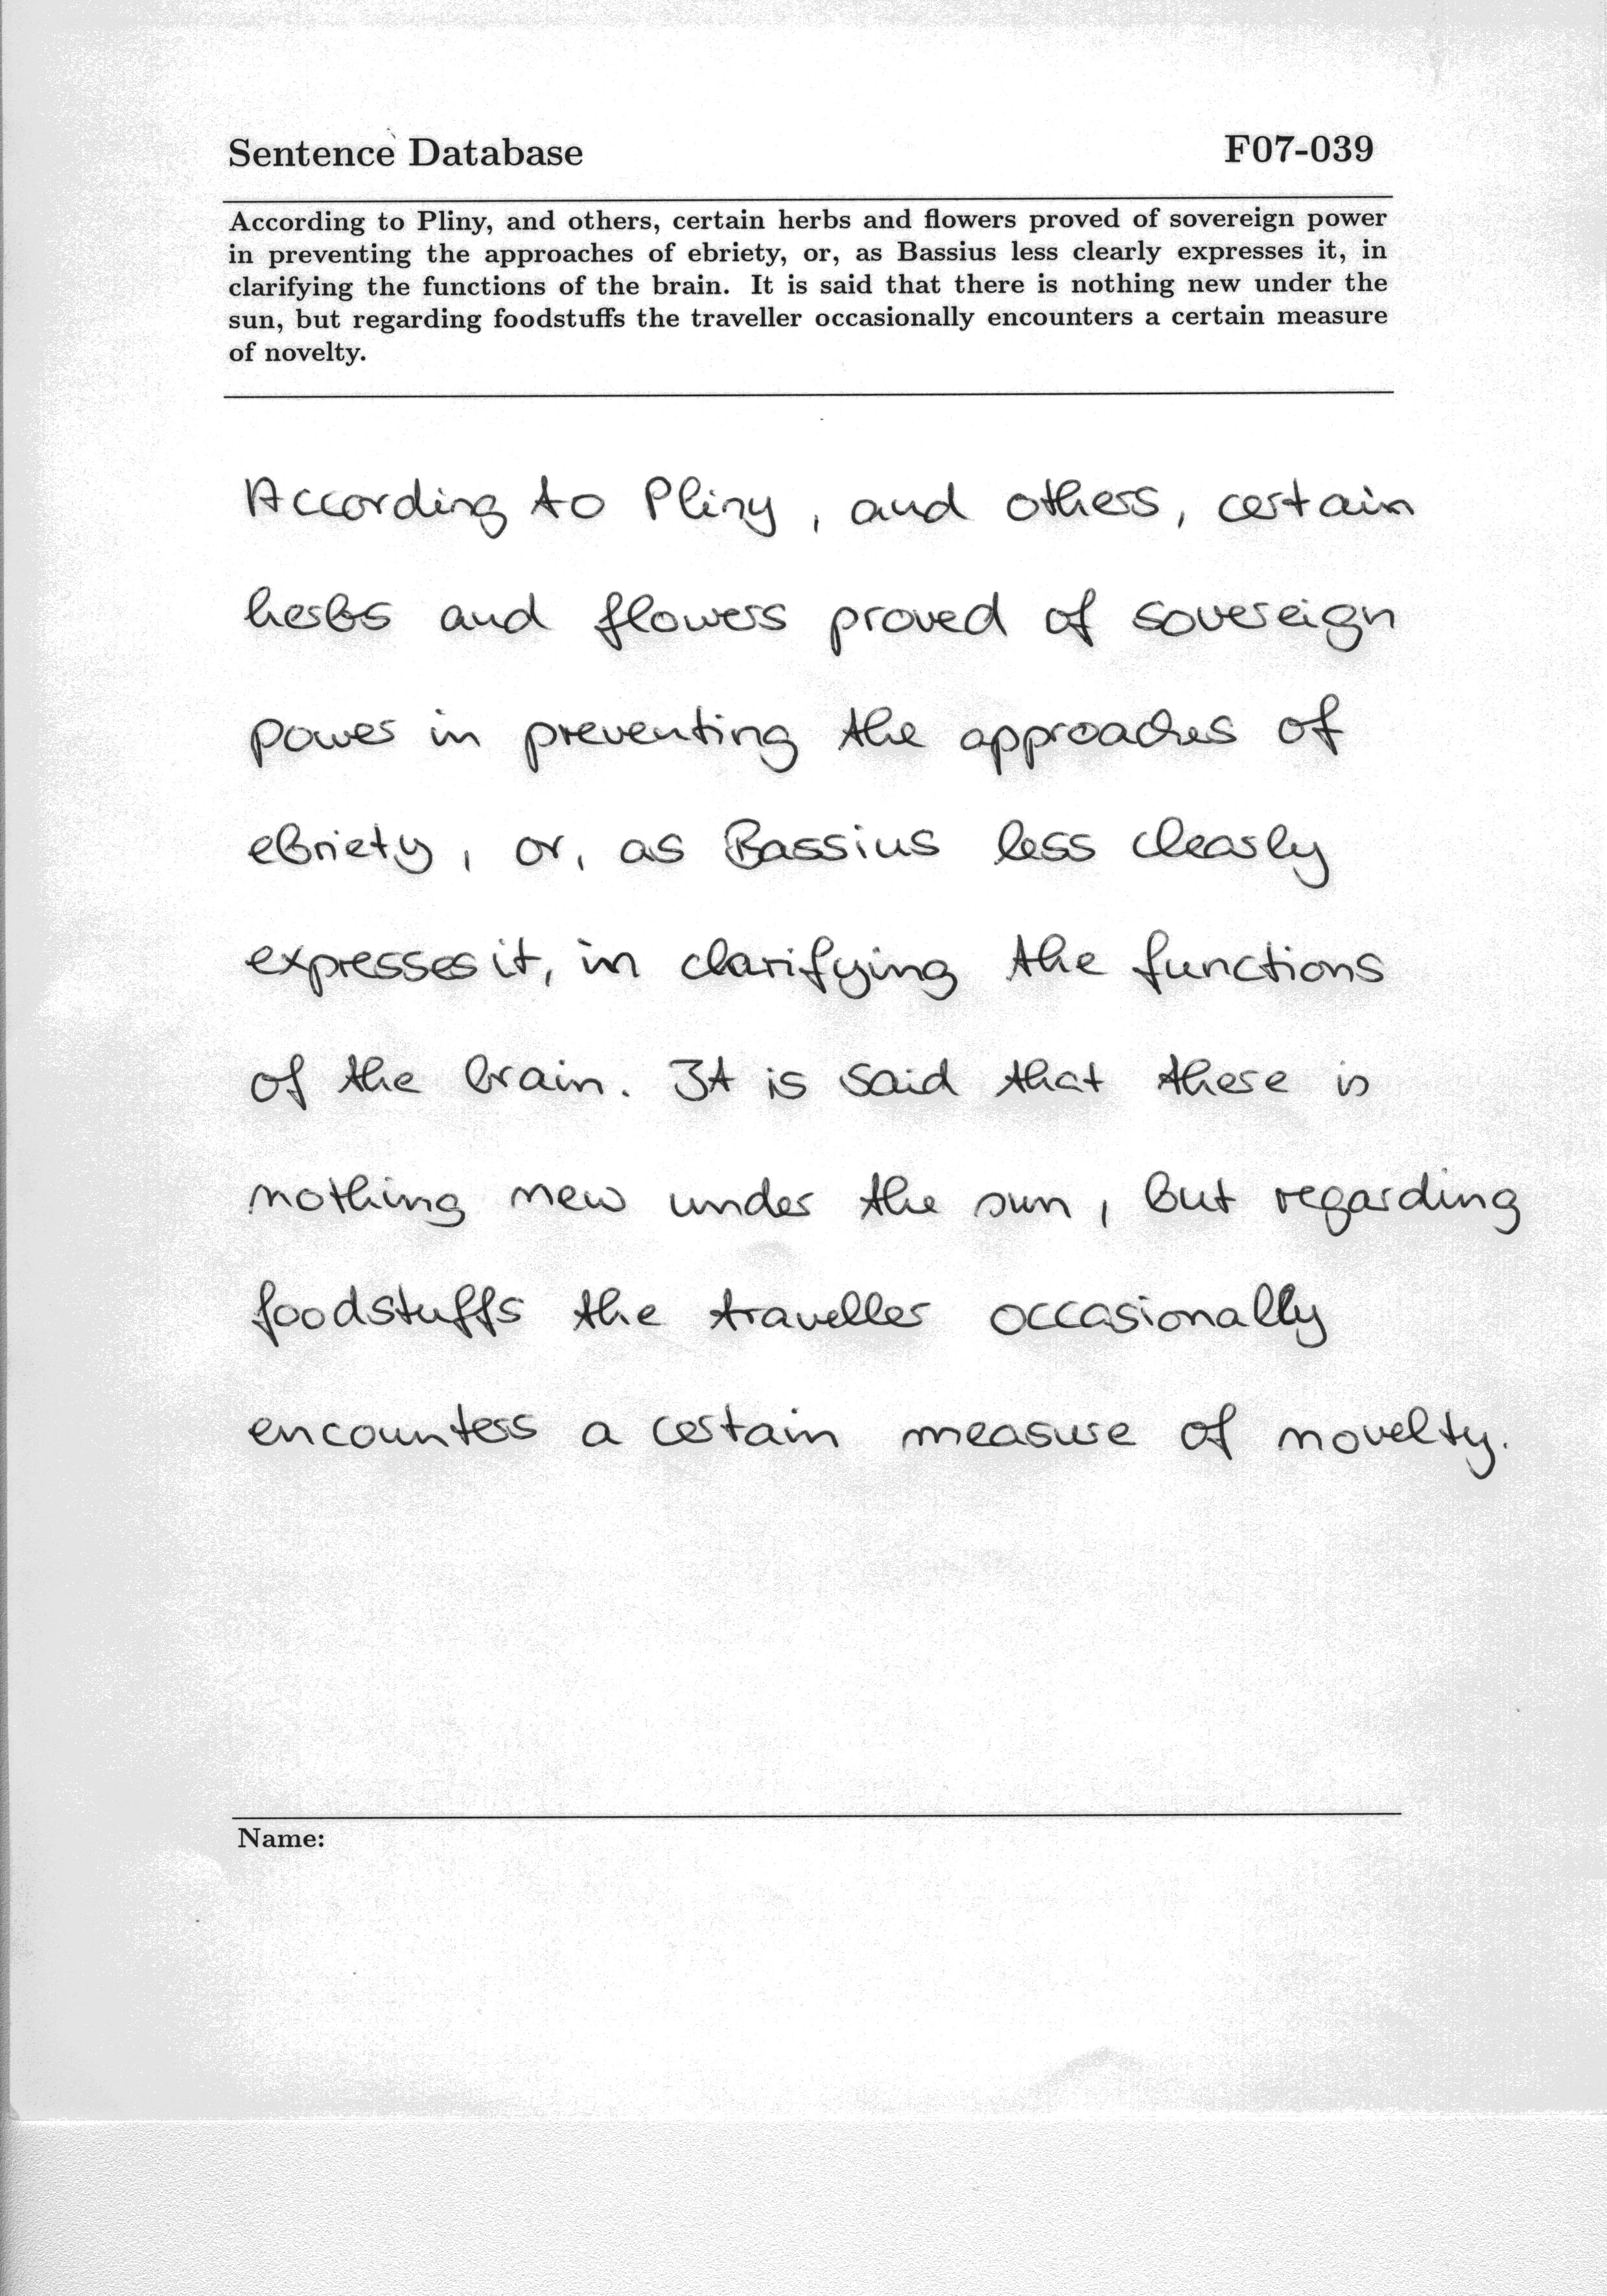 Sentence Database F07-039
According to Pliny, and others, certain herbs and flowers proved of sovereign power
in preventing the approaches of ebriety, or, as Bassius less clearly expresses it, in
clarifying the functions of the brain. It is said that there is nothing new under the
sun, but regarding foodstuffs the traveller occasionally encounters a certain measure
of novelty.
According to Pliny, and others, certain
herbs and flowers proved of sovereign
power in preventing the approaches of
ebriety, or, as Bassius less clearly
expresses it, in clarifying the functions
of the brain. It is said that there is
nothing new under the sun, but regarding
foodstuffs the traveller occasionally
encounters a certain measure of novelty.
Name: